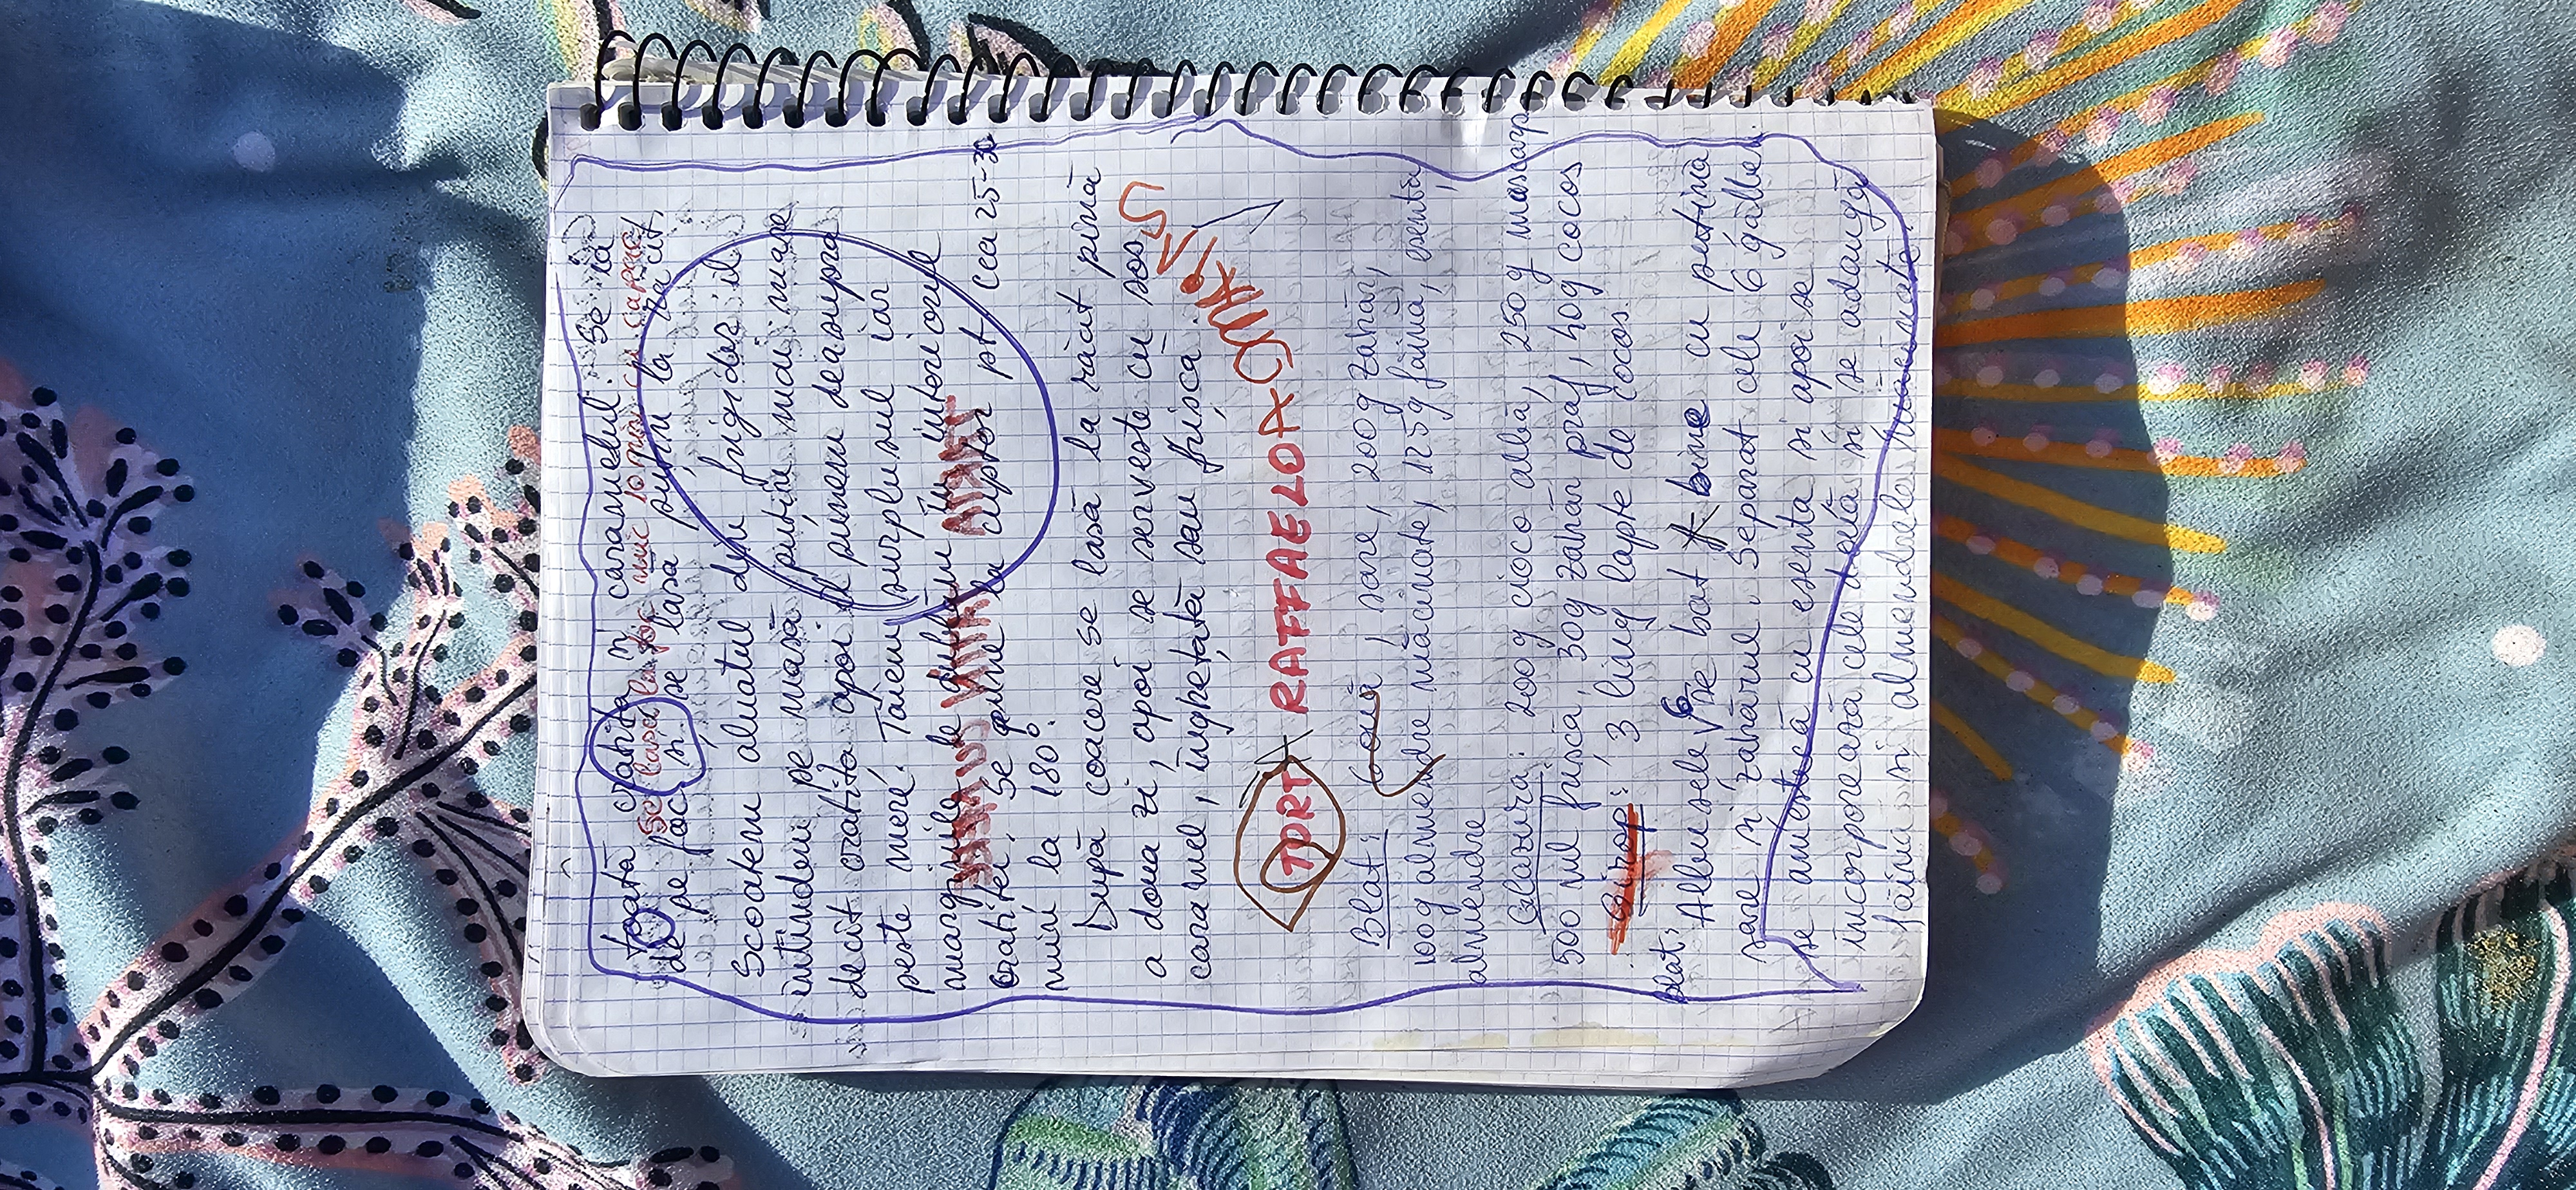 toată cratița și caramelul. Se ia
se lasă la foc mic 10 min cu capac
de pe foc și se lasă puțin la răcit.
Scoatem aluatul din frigider îl
întindem pe masă puțin mai mare
decît cratița apoi îl punem deasupra
peste mere. Tăiem surplusul iar
marginile le dublăm în interiorul
cratiței. Se pune la cuptor pt cca 25-30
min la 180°.
După coacere se lasă la răcit pînă
a doua zi, apoi se servește cu sos
caramel, înghețată sau frișcă.
TORTA RAFFAELOA
Blat: 6 ouă, sare, 200g zahăr,
100g almendre măcinate, 125g făină, esență
almendre
Glazura: 200g cioco albă, 250g mascarp
500 ml frișcă, 30g zahăr praf, 40g cocos
Sirop: 3 ling lapte de cocos.
Blat:
Albușele 6 se bat bine cu puțină
sare și zahărul. Separat cele 6 gălben.
se amestecă cu esența și apoi se
incorporează cele două și se adaugă
făina și almendrele măcinate.